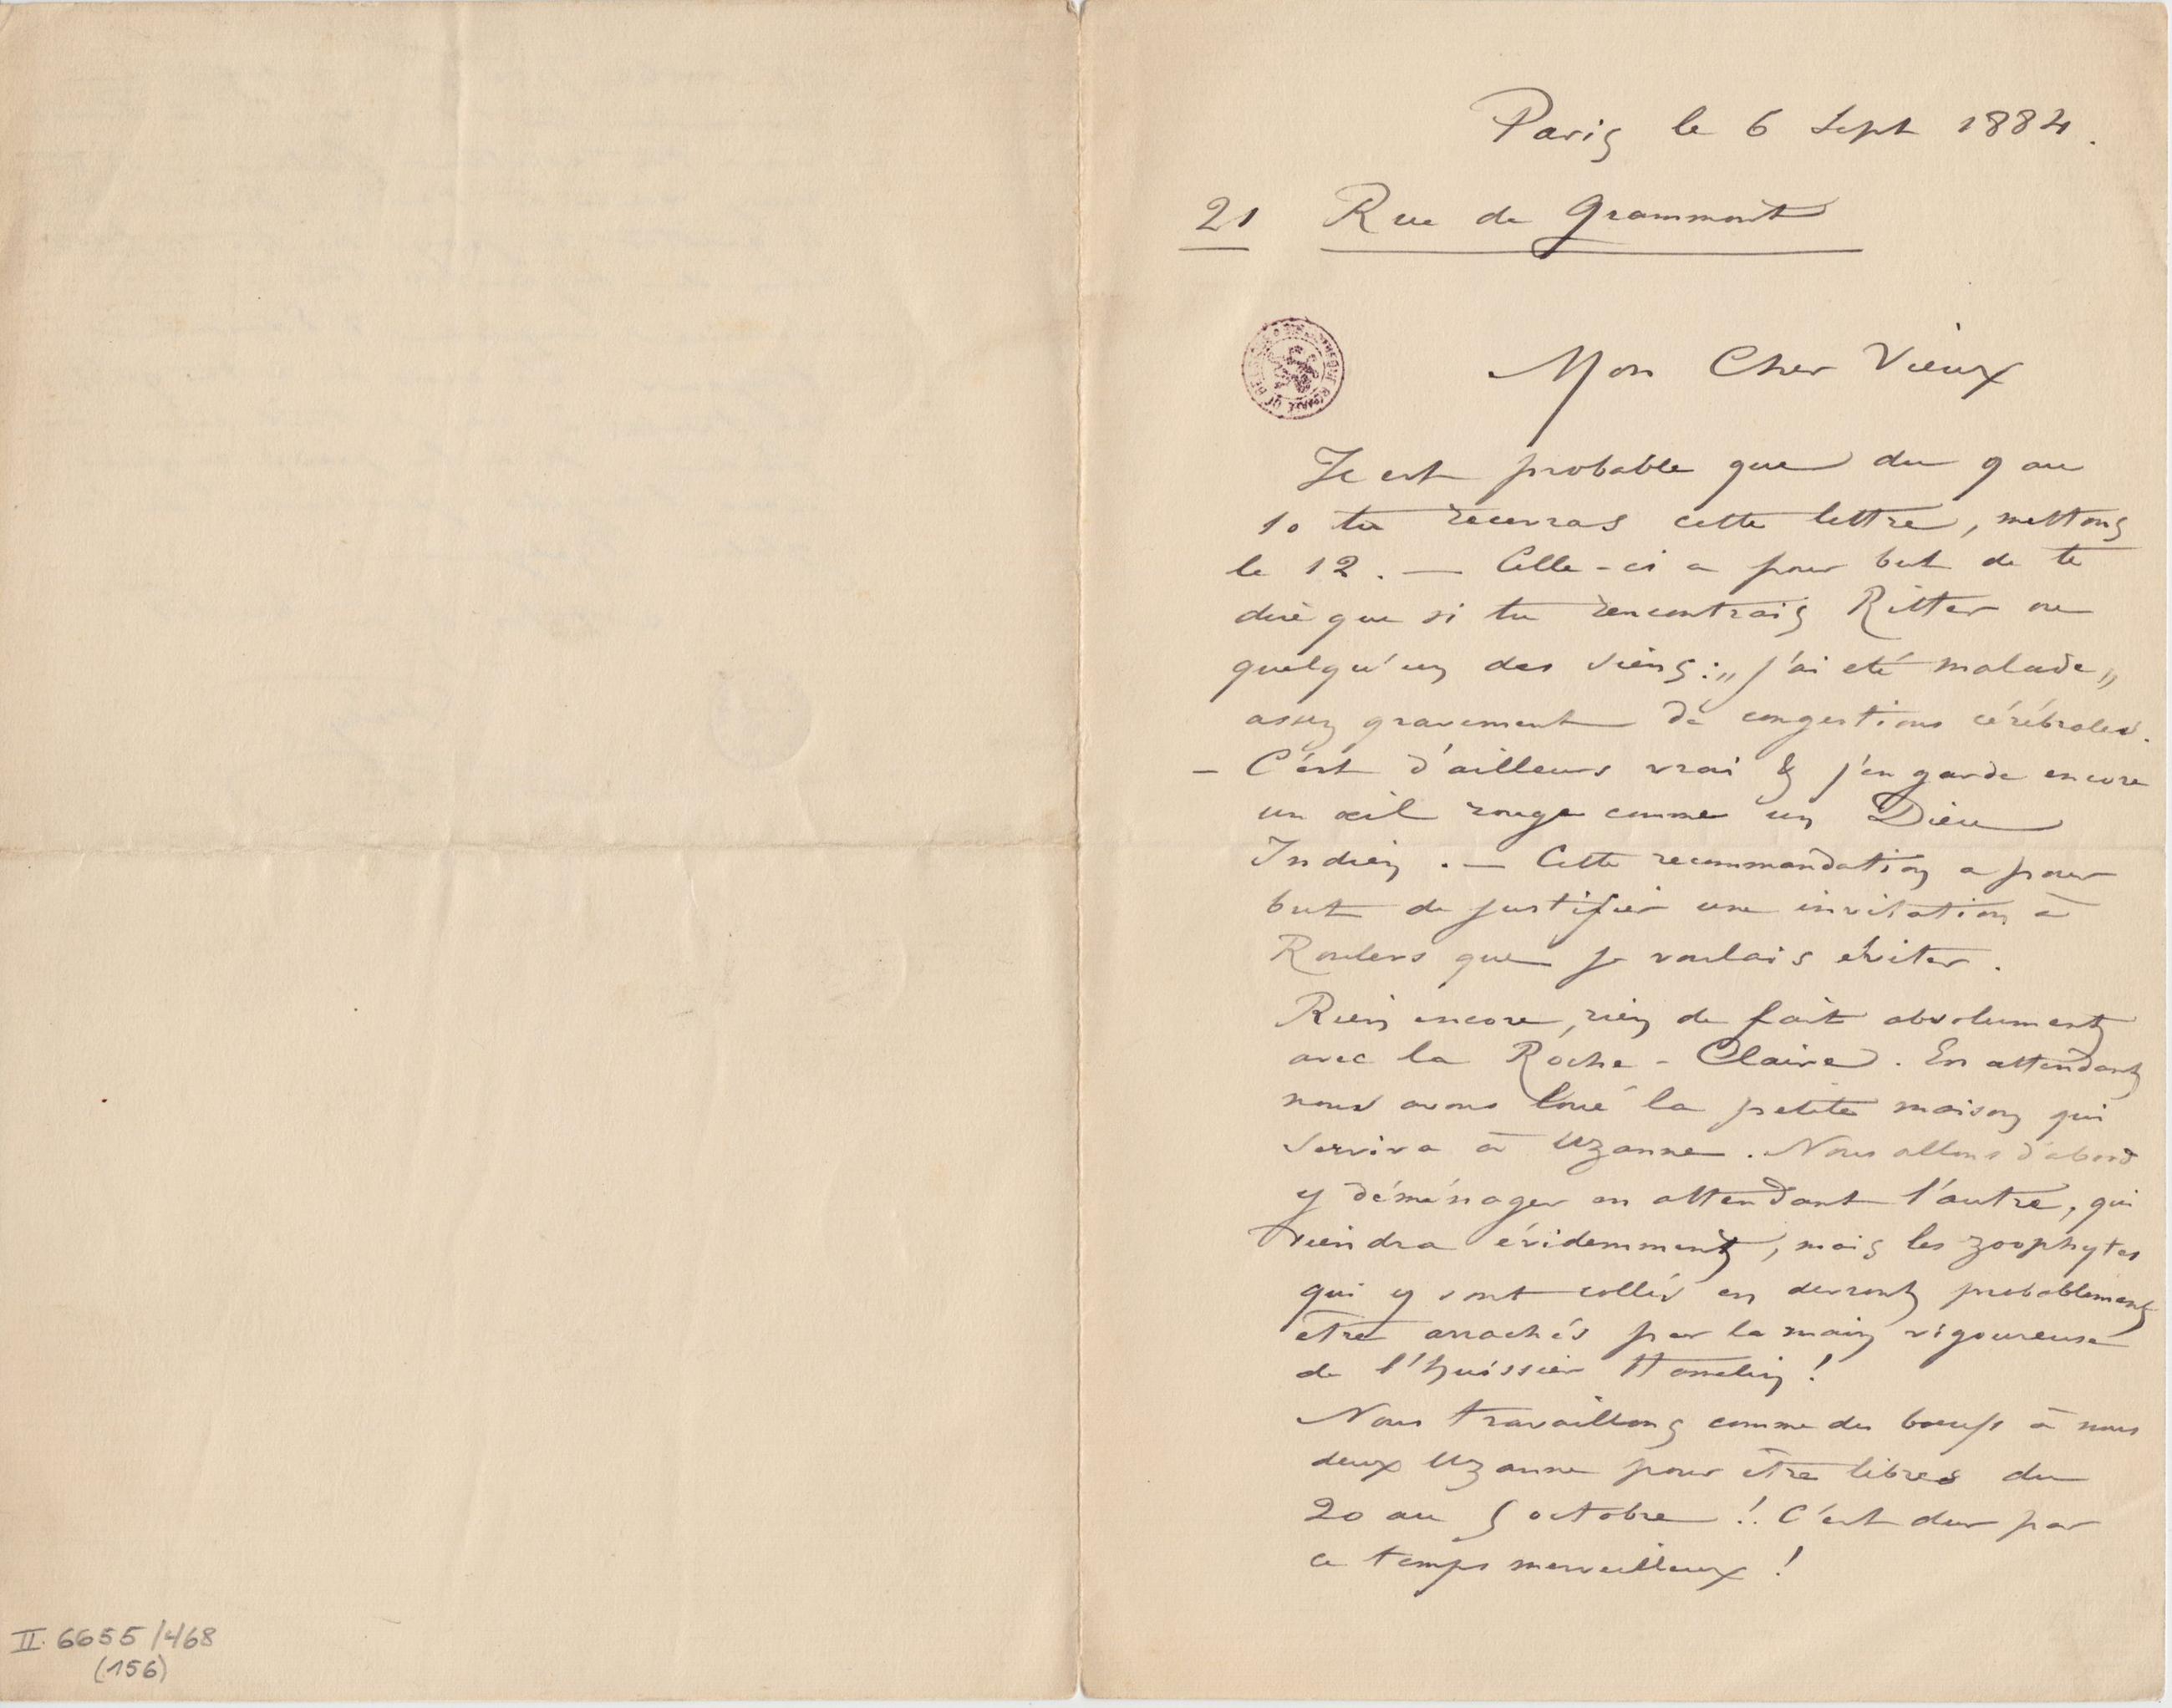 Paris le 6 Sept 1884.
21 Rue de Grammont
Mon Cher Vieux
Il est probable que du 9 au
10 tu recevras cette lettre, mettons
le 12. — Celle-ci a pour but de te
dire que si tu rencontrais Ritter ou
quelqu'un des siens: „ j'ai eté malade „
assez gravement de congestions cérébrales.
— C'est d'ailleurs vrai & j'en garde encore
un œil rouge comme un Dieu
Indien. — Cette recommandation a pour
but de justifier une invitation à
Roulers que je voulais eviter.
Rien encore, rien de fait absolument
avec la Roche-Claire. En attendant
nous avons loué la petite maison qui
servira à Uzanne. Nous allons d'abord
y déménager en attendant l'autre, qui
viendra évidemment, mais les zoophytes
qui y sont collés en devront probablement
être arrachés par la main vigoureuse
de l'huissier Hamelin!
Nous travaillons comme des bœufs à nous
deux Uzanne pour être libres du
20 au 5 octobre! C'est dur par
ce temps merveilleux!
II. 6655/468
(156)